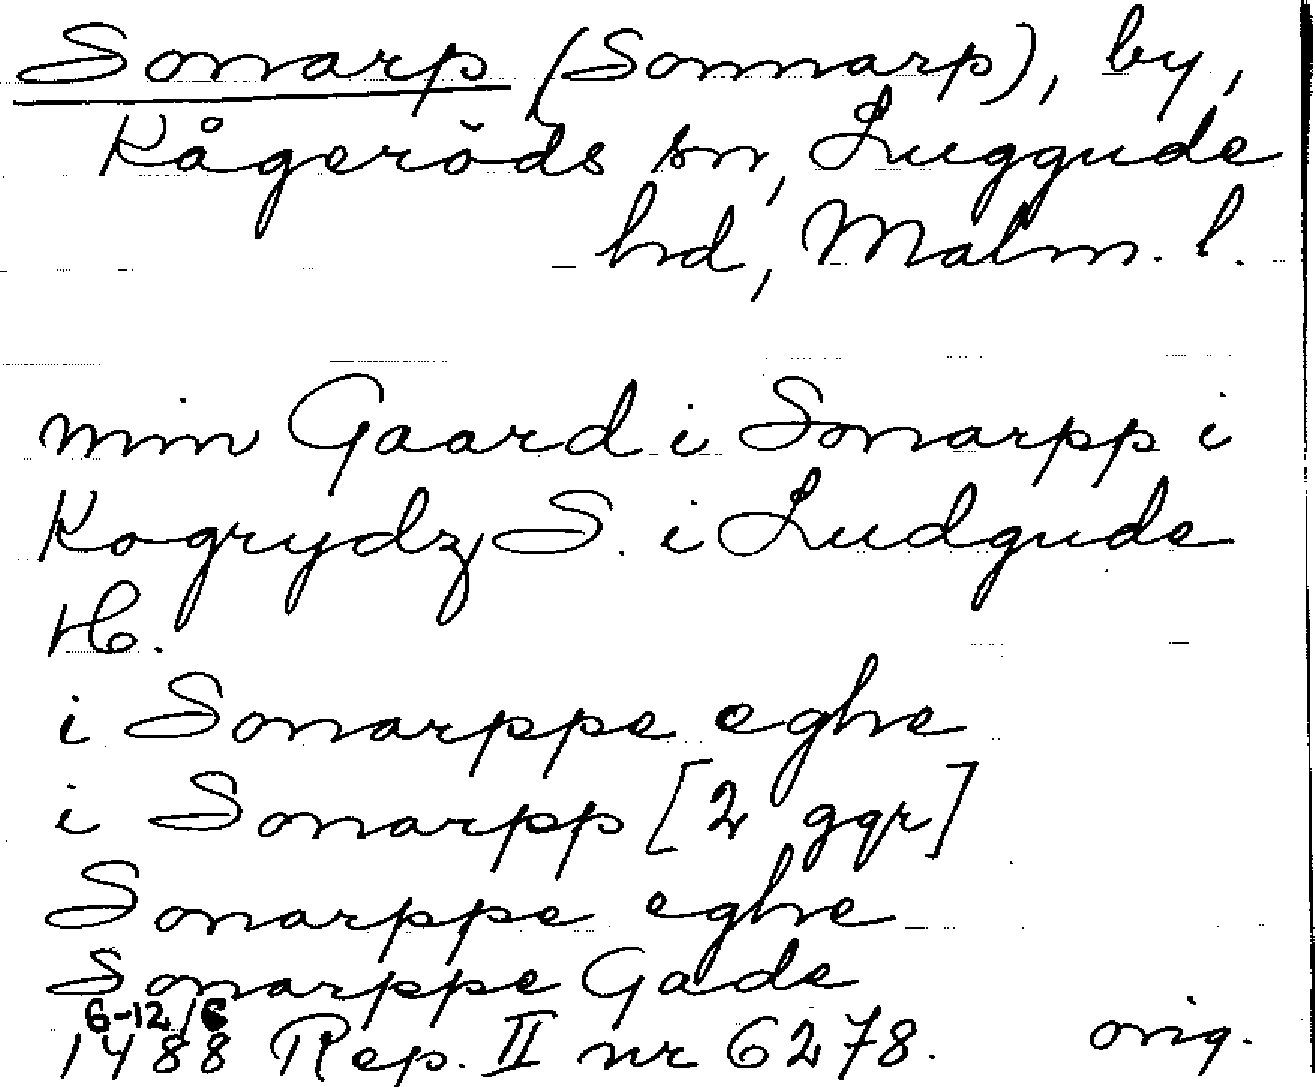 Sonnarp (Sonnarp), by,
Kågeröds sn, Luggude
hd, Malm. l.
min Gaard i Sonarpp i
Kogrydz S. i Ludgude
H.
i Sonarppe eghe
i Sonarpp [2 ggr]
Sonarppe eghe
Sonarppe Gade
6-12/6
1488 Rep. II nr 6278. orig.